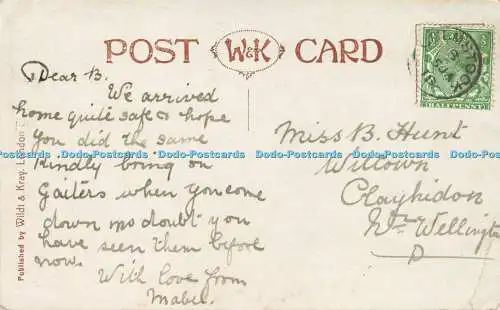 POST W&K CARD
Dear B.
We arrived
home quite safe & hope
you did the same
Kindly bring on
Gaiters when you come
down no doubt you
have seen them before
now.
With love from
Mabel.
Miss B. Hunt
Willown
Clayhidon
Nr. Wellington
HALFPENNY
Published by Wildt & Kray, London
Dodo-Postcards Dodo-Postcards Dodo-Postcards Dodo-Postcards Dodo-Postcards Dodo-Postcards